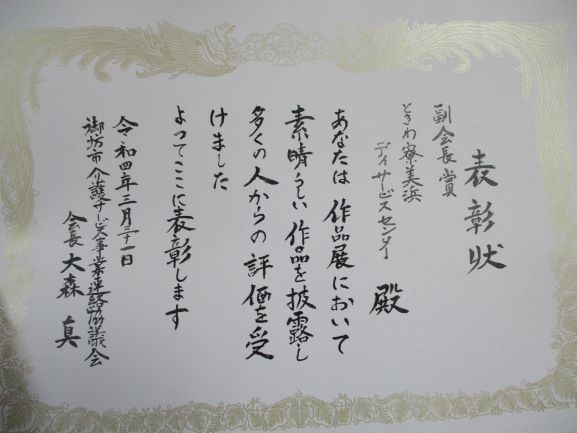 表彰状
副会長賞
ときわ寮美浜
デイサービスセンター
殿
あなたは作品展において
素晴らしい作品を披露し
多くの人からの評価を受
けました
よってここに表彰します
令和四年三月三十一日
御坊市介護サービス事業連絡協議会
会長 大森 真